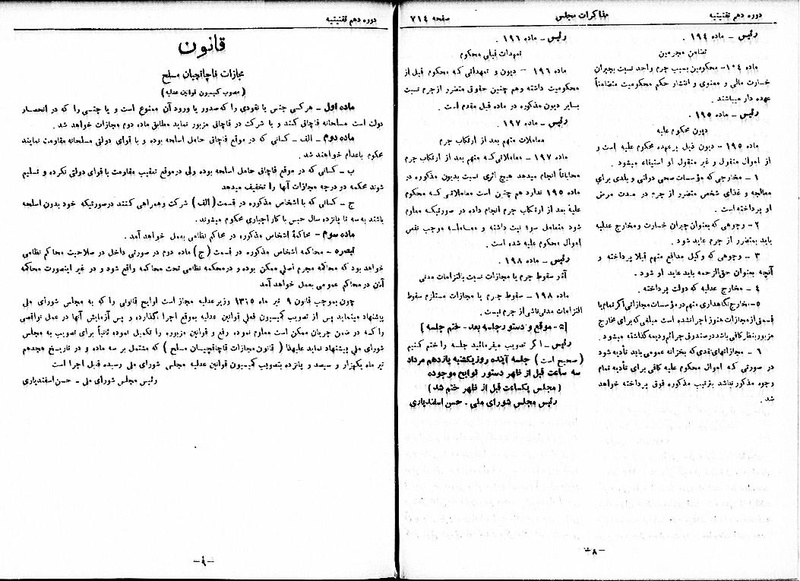 دوره دهم تقنینیه
مذاکرات مجلس
صفحه ۷۱۴
رئیس - ماده ۱۹۴ .
تضامن مجرمین
ماده ۱۹۴ - محکومین بسبب جرم واحد نسبت بجبران
خسارت مالی و معنوی و انتشار حکم محکومیت متضامناً
عهده دار میباشند .
رئیس - ماده ۱۹۵ .
دیون محکوم علیه
ماده ۱۹۵ - دیون ذیل بر عهده محکوم علیه است و
از اموال منقول و غیر منقول او استیفاء میشود .
۱ - مخارجی که مؤسسات صحی دولتی و بلدی برای
معالجه و غذای شخص متضرر از جرم در مدت مرض
او پرداخته است .
۲ - وجوهی که بعنوان جبران خسارت و مخارج عدلیه
باید بمتضرر از جرم عاید شود .
۳ - وجوهی که وکیل مدافع متهم قبلا پرداخته و
آنچه بعنوان حق الزحمه باید عاید او شود .
۴ - مخارج عدلیه که دولت پرداخته .
۵ - مخارج نگاهداری متهم در مؤسسات مجازاتی اگر تمام یا
قسمتی از مجازات هنوز اجرا نشده است مبلغی که برای مخارج
مزبور بنظر کافی باشد در صندوق جرائم ودیعه گذاشته میشود .
۶ - مجازاتهای نقدی که بخزانه عمومی باید تأدیه شود
در صورتی که اموال محکوم علیه کافی برای تأدیه تمام
وجوه مذکور نباشد بترتیب مذکوره فوق پرداخته خواهد
شد .
رئیس - ماده ۱۹۶ .
تعهدات قبلی محکوم
ماده ۱۹۶ - دیون و تعهداتی که محکوم قبل از
محکومیت داشته وهم چنین حقوق متضرر از جرم نسبت
بسایر دیون مذکوره در ماده قبل مقدم است .
رئیس - ماده ۱۹۷ .
معاملات متهم بعد از ارتکاب جرم
ماده ۱۹۷ - معاملاتی که متهم بعد از ارتکاب جرم
محاباتاً انجام میدهد هیچ اثری نسبت بدیون مذکوره در
ماده ۱۹۵ ندارد هم چنین است معاملاتی که محکوم
علیه بعد از ارتکاب جرم انجام داده در صورتیکه معلوم
شود متعامل سوء نیت داشته و معامله موجب نقص
اموال محکوم علیه شده است .
رئیس - ماده ۱۹۸ .
آثار سقوط جرم یا مجازات نسبت بالتزامات مدنی
ماده ۱۹۸ - سقوط جرم یا مجازات مستلزم سقوط
التزامات مدنی ناشی از جرم نیست .
[ ۵ - موقع و دستور جلسه بعد - ختم جلسه ]
رئیس - اگر تصویب میفرمائید جلسه را ختم کنیم
( صحیح است ) جلسه آینده روز یکشنبه یازدهم مرداد
سه ساعت قبل از ظهر دستور لوایح موجوده
( مجلس یکساعت قبل از ظهر ختم شد )
رئیس مجلس شورای ملی - حسن اسفندیاری
-۸-
دوره دهم تقنینیه
قانون
مجازات قاچاقچیان مسلح
( مصوب کمیسیون قوانین عدلیه )
ماده اول - هرکس جنس یا نقودی را که صدور یا ورود آن ممنوع است و یا جنسی را که در انحصار
دولت است مسلحانه قاچاق کند و یا شرکت در قاچاق مزبور نماید مطابق ماده دوم مجازات خواهد شد .
ماده دوم - الف - کسانی که در موقع قاچاق حامل اسلحه بوده و با قوای دولتی مسلحانه مقاومت نمایند
محکوم باعدام خواهند شد .
ب - کسانی که در موقع قاچاق حامل اسلحه بوده ولی در موقع تعقیب مقاومت با قوای دولتی نکرده و تسلیم
شوند محکمه دو درجه مجازات آنها را تخفیف میدهد
ج - کسانی که با اشخاص مذکوره در قسمت ( الف ) شرکت و همراهی کنند در صورتیکه خود بدون اسلحه
باشند به سه تا پانزده سال حبس با کار اجباری محکوم میشوند .
ماده سوم - محاکمهٔ اشخاص مذکوره در محاکم نظامی بعمل خواهد آمد .
تبصره - محاکمه اشخاص مذکوره در قسمت ( ج ) ماده دوم در صورتی داخل در صلاحیت محاکم نظامی
خواهد بود که محاکمه مجرم اصلی ممکن بوده و در محکمه نظامی تحت محاکمه واقع شود و در غیر اینصورت محاکمه
آنان در محاکم عمومی بعمل خواهد آمد
چون بموجب قانون ۹ تیر ماه ۱۳۱۵ وزیر عدلیه مجاز است لوایح قانونی را که به مجلس شورای ملی
پیشنهاد مینماید پس از تصویب کمیسیون فعلی قوانین عدلیه بموقع اجرا گذارده و پس از آزمایش آنها در عمل نواقصی
را که در ضمن جریان ممکن است معلوم شود، رفع و قوانین مزبوره را تکمیل نموده ثانیاً برای تصویب به مجلس
شورای ملی پیشنهاد نماید علیهذا ( قانون مجازات قاچاقچیان مسلح ) که مشتمل بر سه ماده و در تاریخ هجدهم
تیر ماه یکهزار و سیصد و پانزده بتصویب کمیسیون قوانین عدلیه مجلس شورای ملی رسیده قابل اجرا است
رئیس مجلس شورای ملی - حسن اسفندیاری